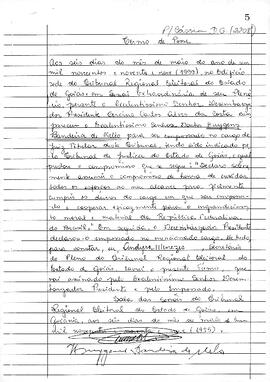 5
Termo de Posse
Aos seis dias do mês de maio do ano de um
mil novecentos e noventa e nove (1999), no Edifício
sede do Tribunal Regional Eleitoral do Estado
de Goiás, em Sessão Extraordinária de seu Plená-
rio perante o Excelentíssimo Senhor Desembarga-
dor Presidente
pareceu o Excelentíssimo Senhor Doutor
Bandeira de Mello para ser empossado no cargo de
Juiz Titular deste Tribunal, tendo sido indicado pe-
lo Tribunal de Justiça do Estado de Goiás, e que
prestou o compromisso que se segue: "Declaro solene-
mente assumir o compromisso de honra de envidar
todos os esforços ao meu alcance para fielmente
cumprir os deveres do cargo em que sou empossa-
do e cooperar eficazmente para o
moral e material da República Federativa
do Brasil." Em seguida, o Desembargador Presidente
declarou-o empossado no mencionado cargo. Do que,
para constar, eu, Secretária
do Pleno do Tribunal Regional Eleitoral do
Estado de Goiás, lavrei o presente Termo, que
vai assinado pelo Excelentíssimo Senhor Desem-
bargador Presidente e pelo Empossado.
Sala das Sessões do Tribunal
Regional Eleitoral do Estado de Goiás, em
Goiânia, aos seis dias do mês de maio de um
mil novecentos e noventa e nove (1999).
Bandeira de Mello